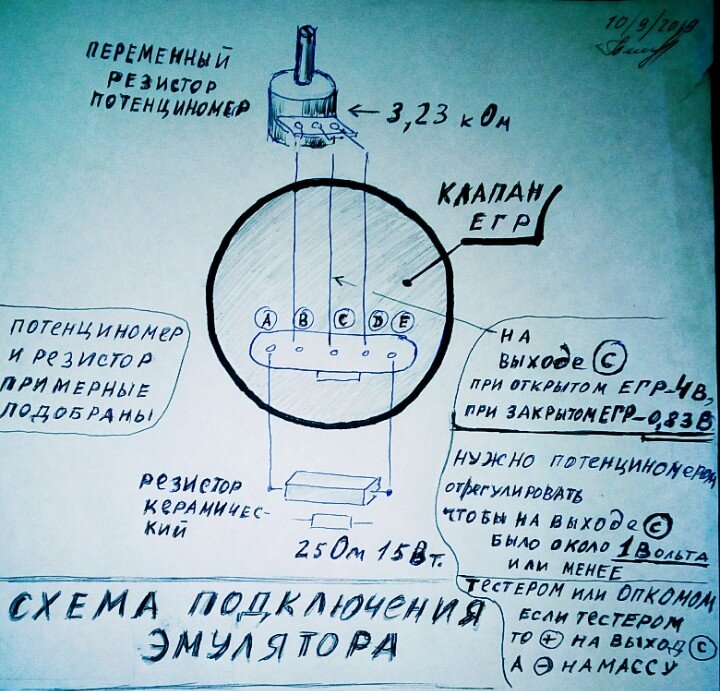 10/9/2019
ПЕРЕМЕННЫЙ
РЕЗИСТОР
ПОТЕНЦИНОМЕР
← 3,23 кОм
КЛАПАН
ЕГР
A B C D E
ПОТЕНЦИНОМЕР
И РЕЗИСТОР
ПРИМЕРНЫЕ
ПОДОБРАНЫ
НА
ВЫХОДЕ C
ПРИ ОТКРЫТОМ ЕГР-4В,
ПРИ ЗАКРЫТОМ ЕГР-0,83В
НУЖНО ПОТЕНЦИНОМЕРОМ
ОТРЕГУЛИРОВАТЬ
ЧТОБЫ НА ВЫХОДЕ C
БЫЛО ОКОЛО 1 ВОЛЬТА
ИЛИ МЕНЕЕ
ТЕСТЕРОМ ИЛИ ОПКОМОМ
ЕСЛИ ТЕСТЕРОМ
ТО + НА ВЫХОД C
А - НА МАССУ
РЕЗИСТОР
КЕРАМИЧЕС-
КИЙ
25 Ом 15 Вт.
СХЕМА ПОДКЛЮЧЕНИЯ
ЭМУЛЯТОРА